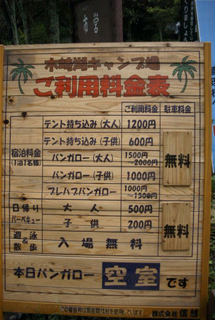 木崎湖キャンプ場
ご利用料金表
ご利用料金 駐車料金
宿泊料金
(1泊1名様)
テント持ち込み(大人) 1200円
テント持ち込み(子供) 600円
バンガロー(大人) 1500円~2000円
バンガロー(子供) 1000円
プレハブバンガロー 1000円~1500円
無料
日帰り
バーベキュー
大人 500円
子供 200円
遊泳&散歩 入場無料
無料
本日バンガロー 空室 です
株式会社